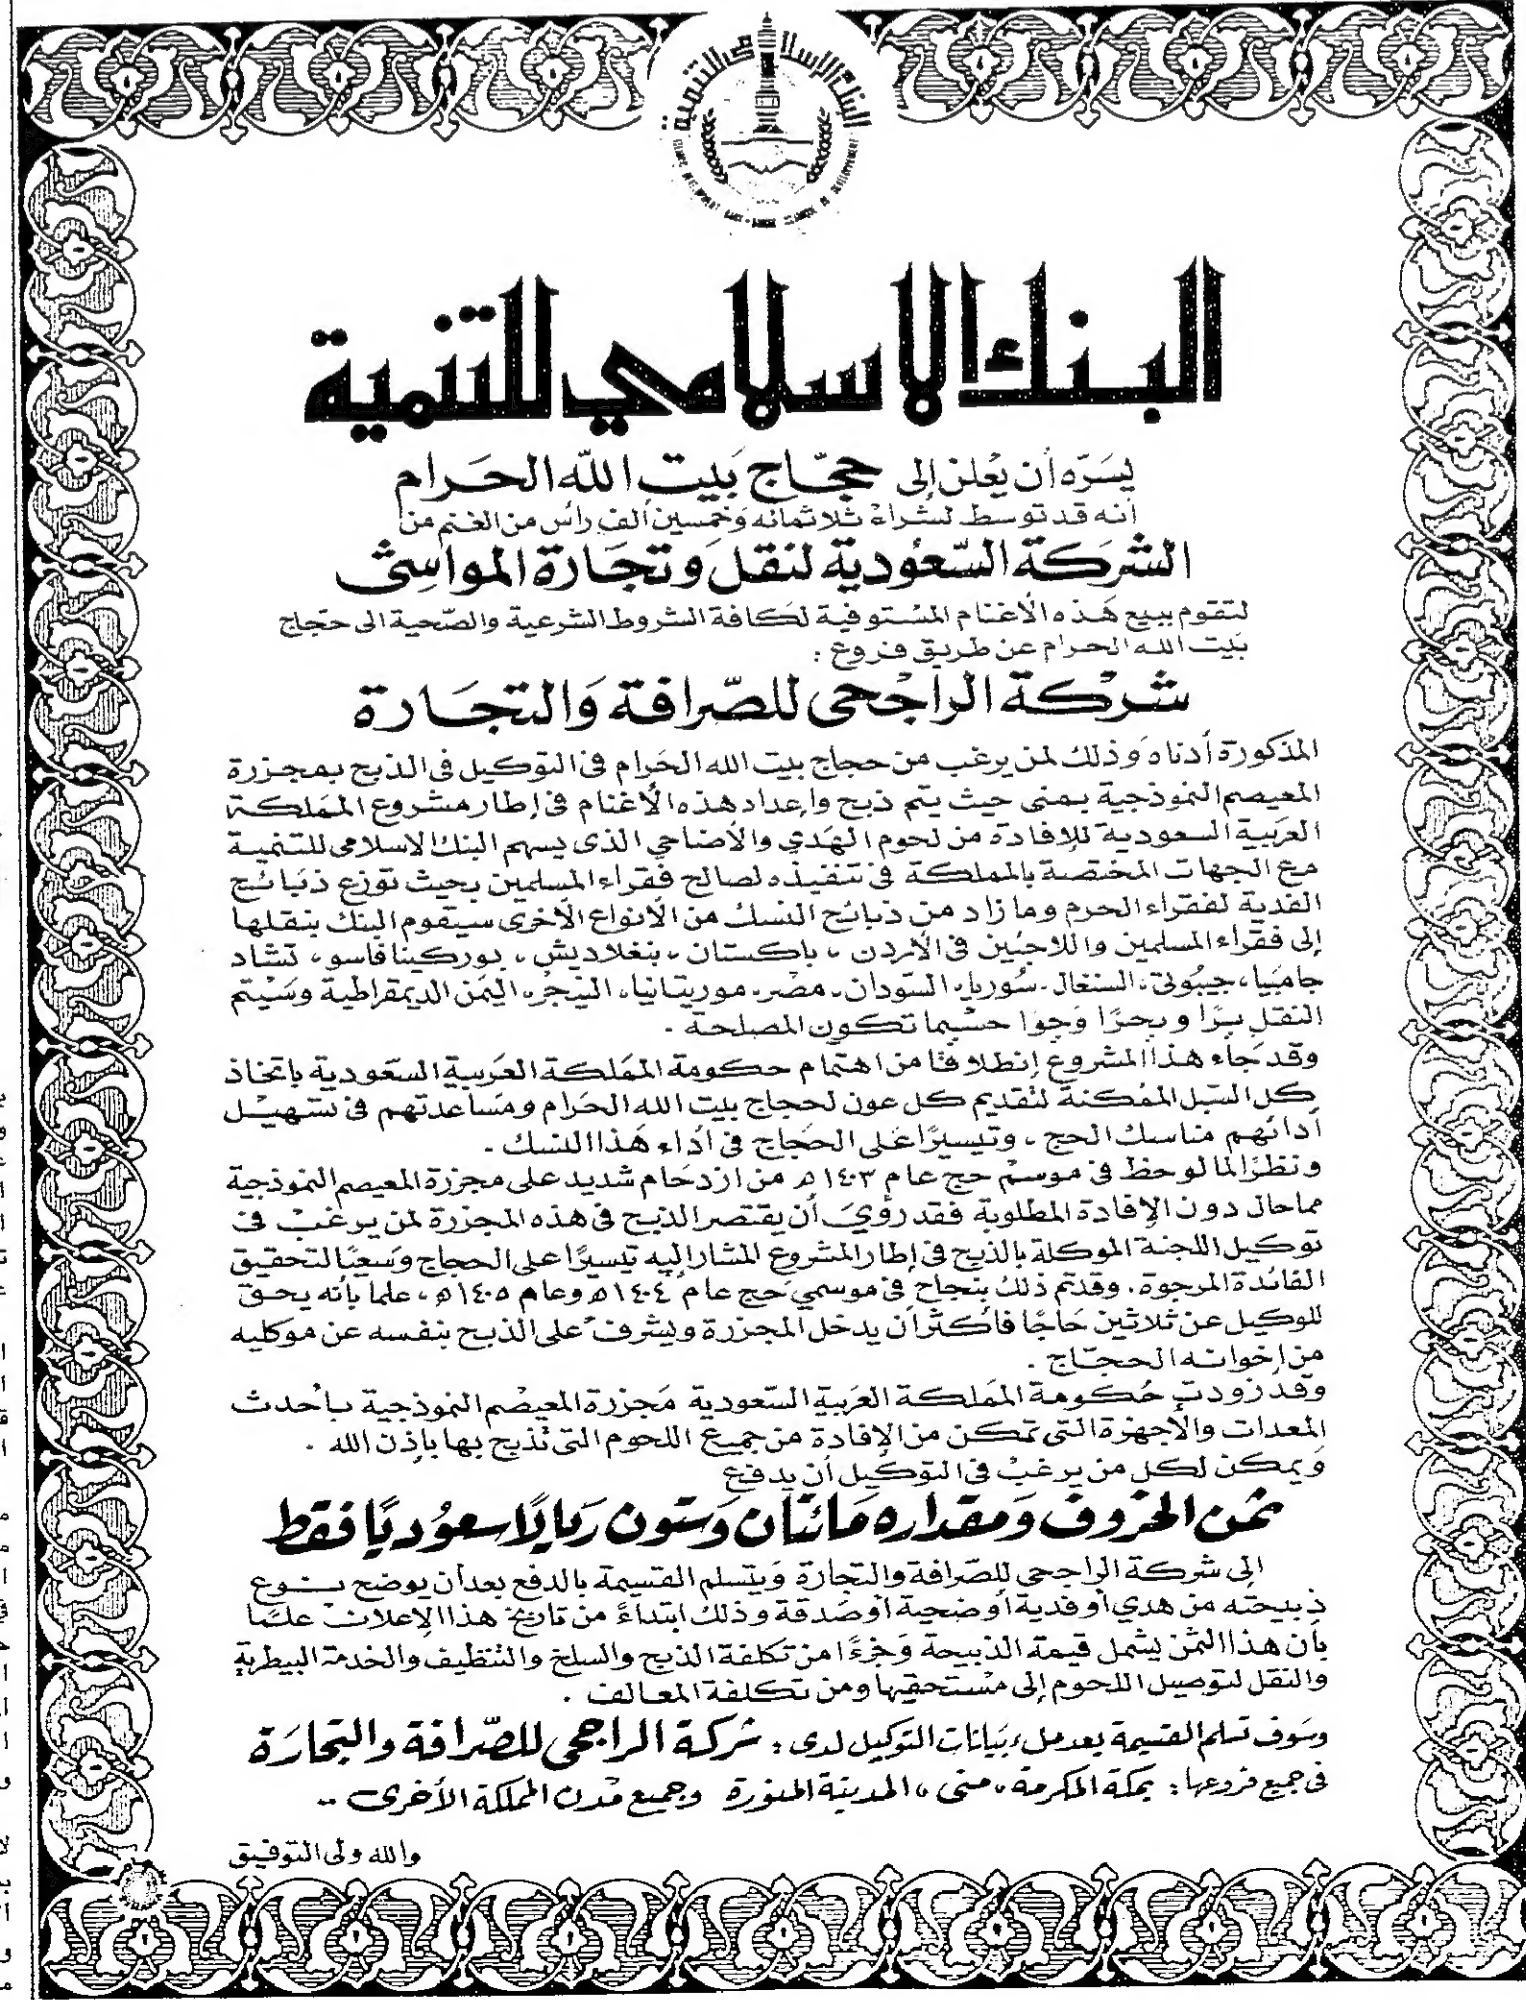 البنك الاسلامي للتنمية
البنك الاسلامي للتنمية
يسَرّه أن يُعْلن إلى حجّاج بَيت الله الحَرام
أنه قد توسط لشراء ثلاثمائه وَخمسين ألف رأس من الغنم من
الشركة السّعُودية لنقل وَتجَارة المواشى
لتقوم ببيع هَذه الأغنام المسْتوفية لكافة الشروط الشرعية والصّحية الى حجاج
بَيت الله الحرام عن طريق فروع :
شركة الراجْحى للصّرافة وَالتجَارة
المذكورة أدناه وَذلك لمن يرغب من حجاج بيت الله الحَرام فى التوكيل فى الذبح بمجزرة
المعيصم النموذجية بمنى حيث يتم ذبح وإعداد هذه الأغنام فى إطار مشروع المملكة
العَربية السعودية للإفادة من لحوم الهَدي والأضاحي الذى يسهم البنك الاسلامى للتنمية
مع الجهات المختصة بالمملكة فى تنفيذه لصالح فقراء المسلمين بحيث توزع ذبَائح
الفدية لفقراء الحرم وما زاد من ذبائح النسك من الأنواع الأخرى سيقوم البنك بنقلها
إلى فقراء المسلمين واللاجئين فى الأردن ، باكستان ، بنغلاديش ، بوركينافاسو ، تشاد
جامبيا ، جيبُوتى ، السنغال ، سُوريا ، السّودان ، مصْر ، موريتانيا ، النيجر ، اليمَن الديمقراطية وسَيتم
النقل برّا وبحرًا وَجوا حسبما تكون المصلحة .
وقد جَاء هذا المشروع إنطلاقًا من اهتمام حكومة المَملكة العَربية السّعودية باتخاذ
كل السّبل الممْكنة لتقديم كل عون لحجاج بيت الله الحَرام ومسَاعدتهم فى تسهيل
أدائهم مناسك الحج ، وتيسيرًا عَلى الحجّاج فى أداء هَذا النسك .
ونظرًا لما لوحظ فى موسمْ حج عام ١٤٠٣ هـ من ازدحَام شديد على مجزرة المعيصم النموذجية
مما حال دون الإفادة المطلوبة فقد رؤيَ أن يقتصر الذبح فى هذه المجزرة لمن يرغب فى
توكيل اللجنة الموكلة بالذبح فى إطار المشروع المشار إليه تيسيرًا على الحجاج وَسعيًا لتحقيق
الفائدة المرجوة . وقد تم ذلك بنجاح فى موسمي حَج عام ١٤٠٤هـ وعام ١٤٠٥هـ ، علما بأنه يحق
للوكيل عن ثلاثين حَاجًا فأكثر أن يدخل المجزرة ويشرف على الذبح بنفسه عن موكليه
من إخوانه الحجّاج .
وقد زودت حُكومة المَملكة العَربية السّعودية مَجزرة المعيصْم النموذجية بأحدث
المعدات والأجهزة التى تمكن من الإفادة من جميع اللحوم التى تذبح بها بإذن الله .
وَيمكن لكل من يرغبْ فى التوكيل أن يدفع
ثمن الخروف وَمقداره مَائتان وَستون ريَالًا سعُوديًا فقط
إلى شركة الراجحى للصّرافة والتجارة وَيتسلم القسيمة بالدفع بعد أن يوضح نوع
ذبيحته من هدي أو فدية أو ضحية أو صَدقة وذلك ابتداءً من تاريخ هذا الإعلان علمًا
بأن هذا الثمَن يشمل قيمة الذبيحة وَجزءًا من تكلفة الذبح والسلخ والتنظيف والخدمة البيطرية
والنقل لتوصيل اللحوم إلى مسْتحقيها ومن تكلفة المعالف .
وسَوف تسلم القسيمة بعد ملء بيَانات التوكيل لدى : شركة الراجحى للصّرافة والتجارَة
فى جميع فروعها : بمكة المكرمة ، منى ، المدينة المنورة وجميع مدن المملكة الأخرى ..
والله ولى التوفيق